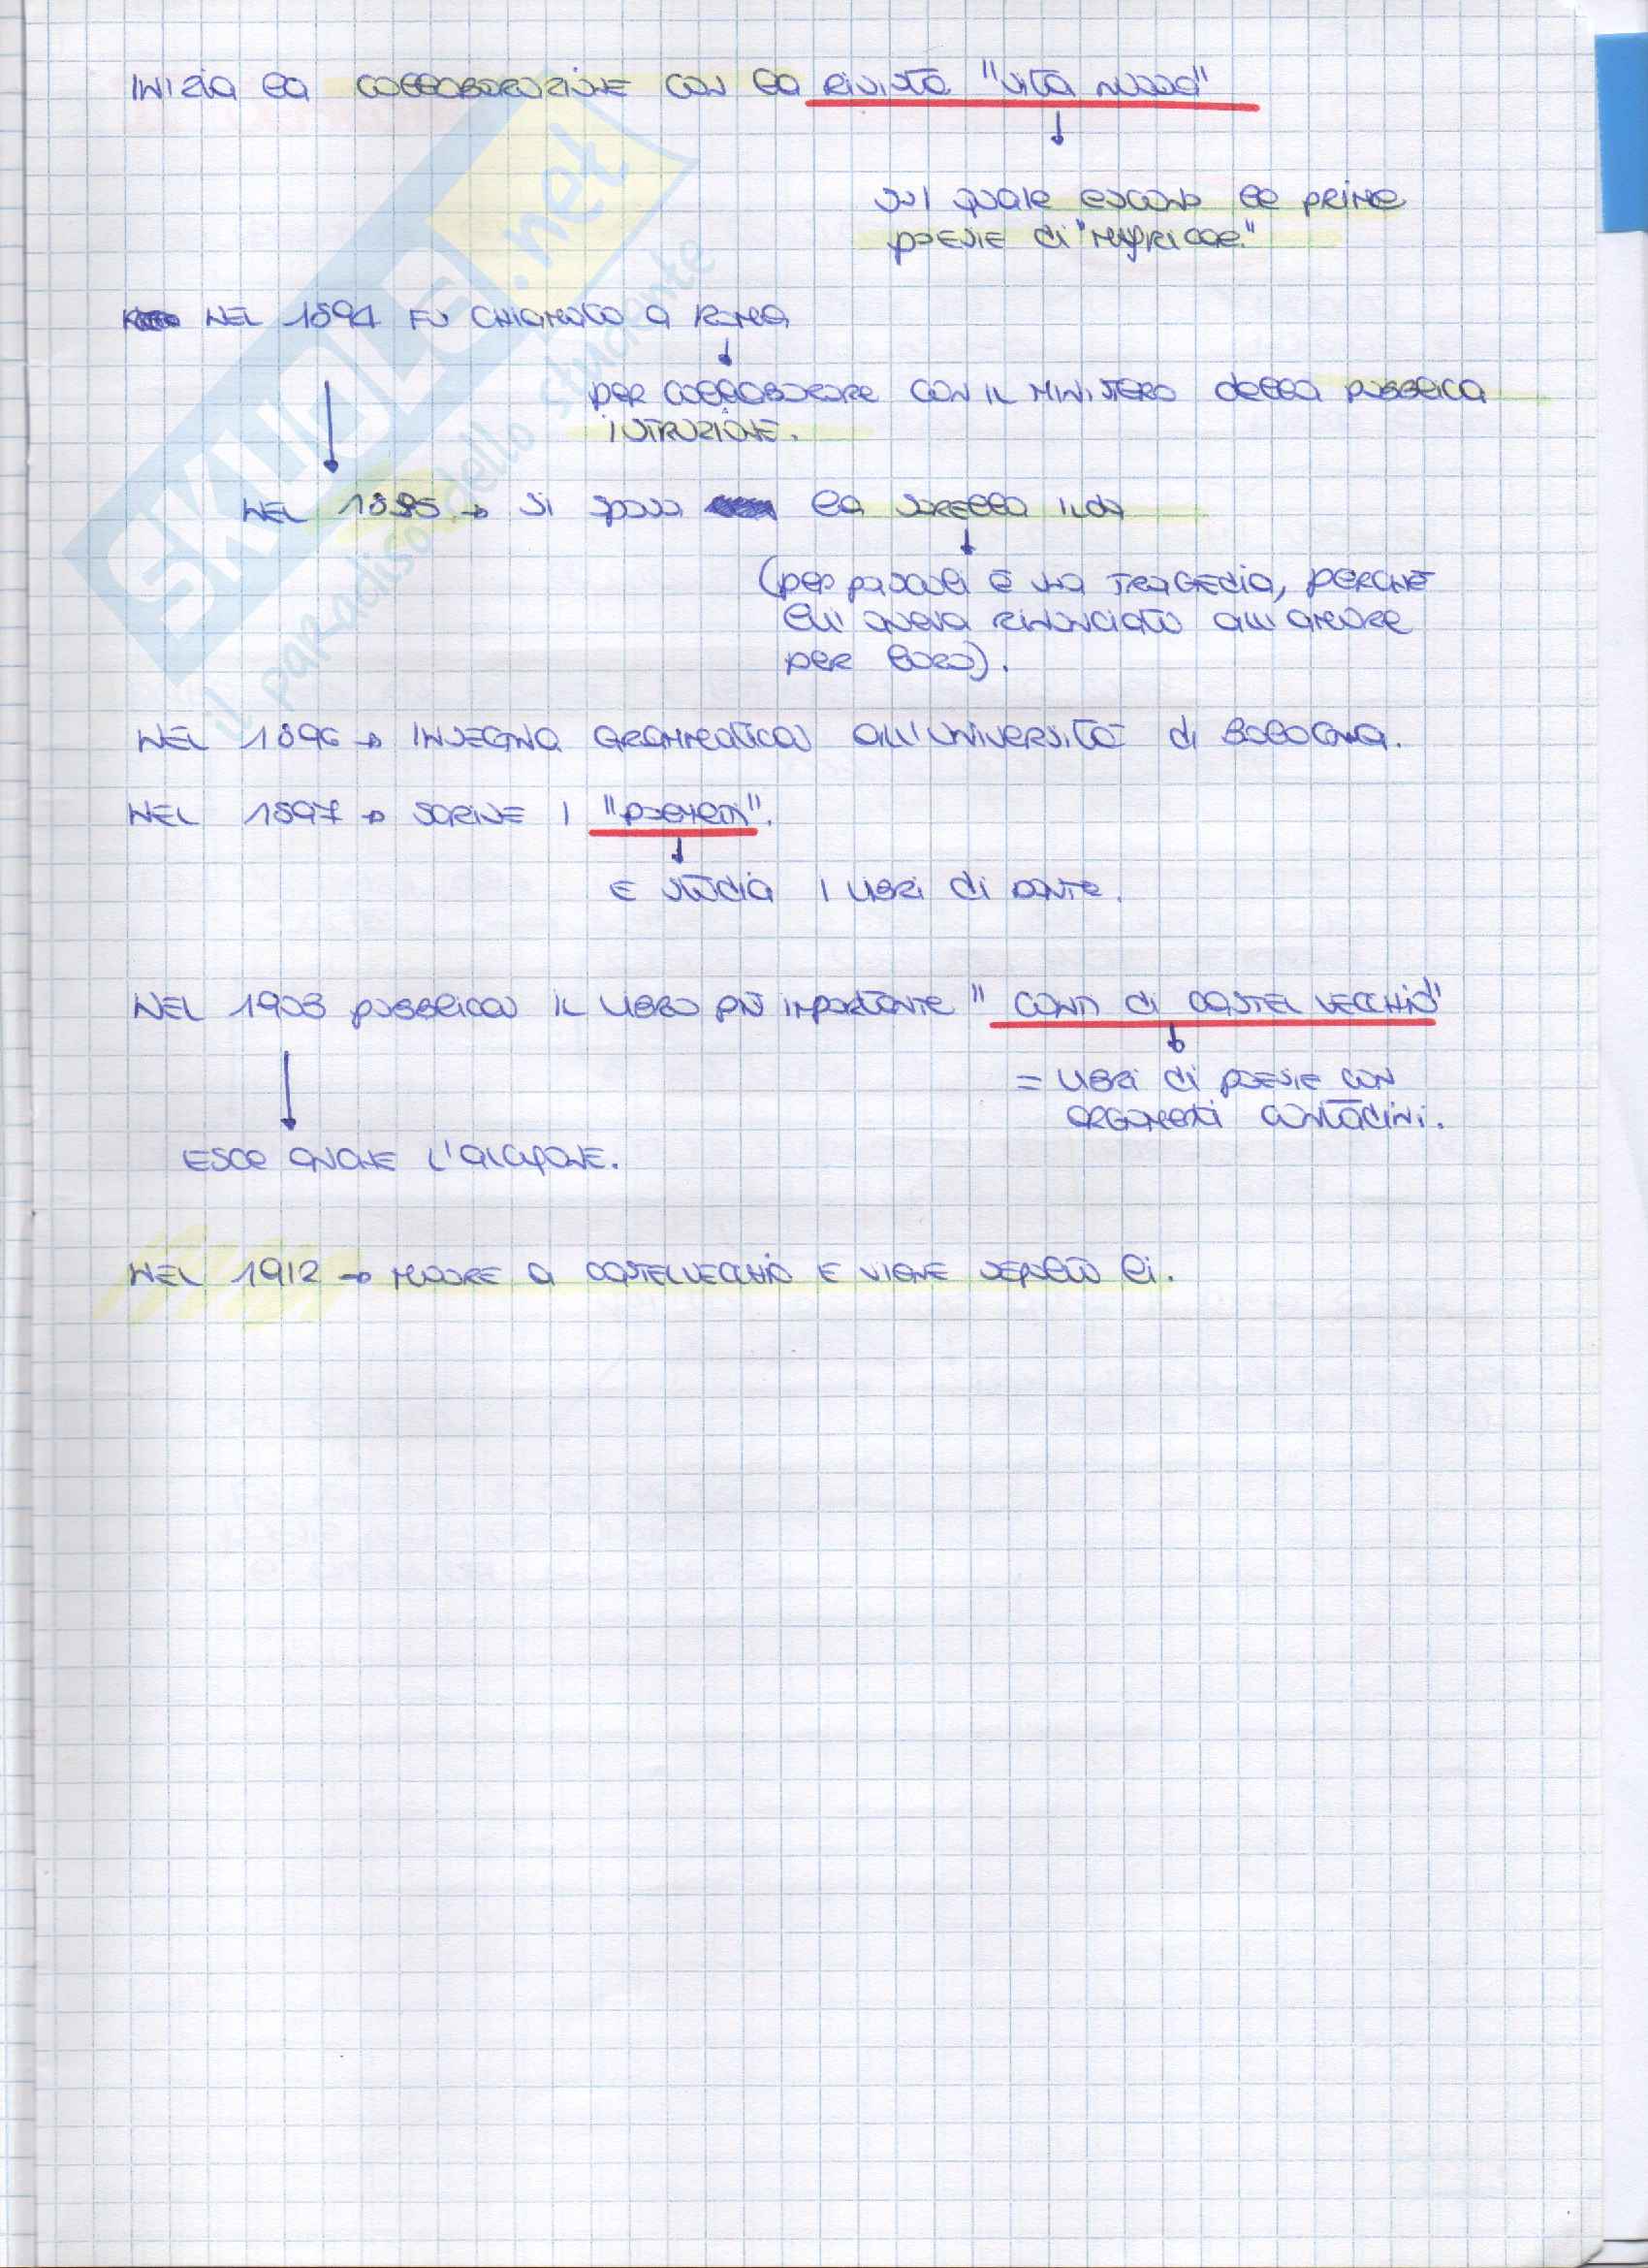 INIZIA la COLLABORAZIONE CON la RIVISTA "VITA NUOVA"
↓
SUL QUALE ESCONO le PRIME
POESIE di "MYRICAE"
NEL 1894 FU CHIAMATO A ROMA
↓
PER COLLABORARE CON IL MINISTERO della PUBBLICA
ISTRUZIONE.
↓
NEL 1895 → SI SPOSA la SORELLA ILDA
↓
(PER PASCOLI È UNA TRAGEDIA, PERCHÈ
lUI AVEVA RINUNCIATO ALL'AMORE
PER lORO).
NEL 1896 → INSEGNA GRAMMATICA ALL'UNIVERSITÀ di BOLOGNA.
NEL 1897 → SCRIVE I "POEMETTI".
↓
E STUDIA I LIBRI di DANTE.
NEL 1903 PUBBLICA IL LIBRO PIÙ IMPORTANTE "CANTI di CASTEL VECCHIO"
↓
= LIBRI di POESIE CON
ARGOMENTI CONTADINI.
↓
ESCE ANCHE L'ALCYONE.
NEL 1912 → MUORE A CASTELVECCHIO E VIENE SEPOLTO lì.
SKUOLA.net
il paradiso dello studente